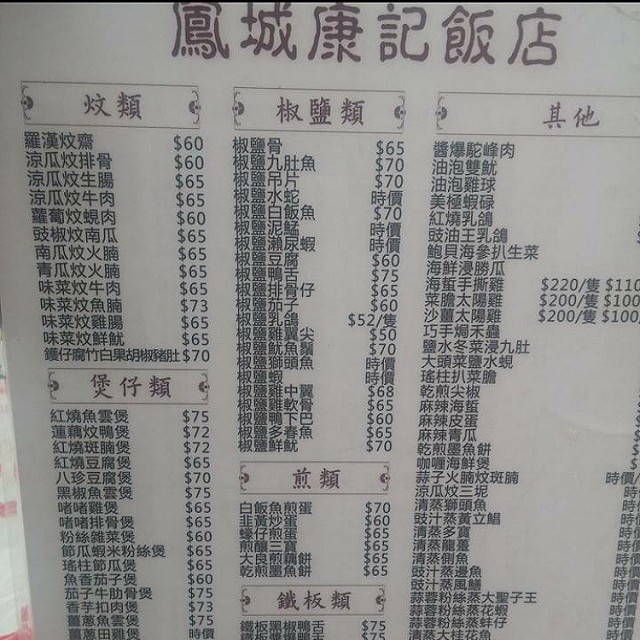 鳳城康記飯店
炆類
羅漢炆齋 $60
涼瓜炆排骨 $60
涼瓜炆生腸 $65
涼瓜炆牛肉 $65
蘿蔔炆蜆肉 $60
豉椒炆南瓜 $65
南瓜炆火腩 $65
青瓜炆火腩 $65
味菜炆牛肉 $65
味菜炆魚腩 $73
味菜炆雞腸 $65
味菜炆鮮魷 $65
鑊仔腐竹白果胡椒豬肚 $70
煲仔類
紅燒魚雲煲 $75
蓮藕炆鴨煲 $72
紅燒斑腩煲 $72
紅燒豆腐煲 $65
八珍豆腐煲 $70
黑椒魚雲煲 $75
啫啫雞煲 $65
啫啫排骨煲 $65
粉絲雜菜煲 $60
節瓜蝦米粉絲煲 $65
瑤柱節瓜煲 $65
魚香茄子煲 $60
茄子牛肋骨煲 $75
香芋扣肉煲 $73
薑蔥魚雲煲 $75
薑蔥田雞煲 時價
椒鹽類
椒鹽骨 $65
椒鹽九肚魚 $70
椒鹽吊片 $70
椒鹽水蛇 時價
椒鹽白飯魚 $70
椒鹽泥鯭 時價
椒鹽瀨尿蝦 時價
椒鹽豆腐 $60
椒鹽鴨舌 $75
椒鹽排骨仔 $65
椒鹽茄子 $60
椒鹽乳鴿 $52/隻
椒鹽雞翼尖 $50
椒鹽魷魚鬚 $70
椒鹽獅頭魚 時價
椒鹽蝦 時價
椒鹽雞中翼 $68
椒鹽雞軟骨 $65
椒鹽鴨下巴 $60
椒鹽多春魚 $65
椒鹽鮮魷 $70
煎類
白飯魚煎蛋 $70
韭黃炒蛋 $60
蠔仔煎蛋 $65
煎釀三寶 $65
大良煎藕餅 $65
乾煎墨魚餅 $65
鐵板類
鐵板黑椒鴨舌 $75
其他
醬爆駝峰肉
油泡雙魷
油泡雞球
美極蝦碌
紅燒乳鴿
豉油王乳鴿
鮑貝海參扒生菜
海鮮浸勝瓜
海蜇手撕雞 $220/隻 $110
菜膽太陽雞 $200/隻 $100
沙薑太陽雞 $200/隻 $100
巧手焗禾蟲
鹽水冬菜浸九肚
大頭菜鹽水蜆
瑤柱扒菜膽
乾煎尖椒
麻辣海蜇
麻辣皮蛋
麻辣青瓜
乾煎墨魚餅
咖喱海鮮煲
蒜子火腩炆斑腩 時價
涼瓜炆三坭 時價
清蒸獅頭魚 時價
豉汁蒸黃立鯧 時價
清蒸多寶 時價
清蒸龍躉 時價
清蒸側魚 時價
豉汁蒸邊魚 時價
豉汁蒸風鱔 時
蒜蓉粉絲蒸大聖子王 時
蒜蓉粉絲蒸花蝦 時
清蒸大花蝦 時